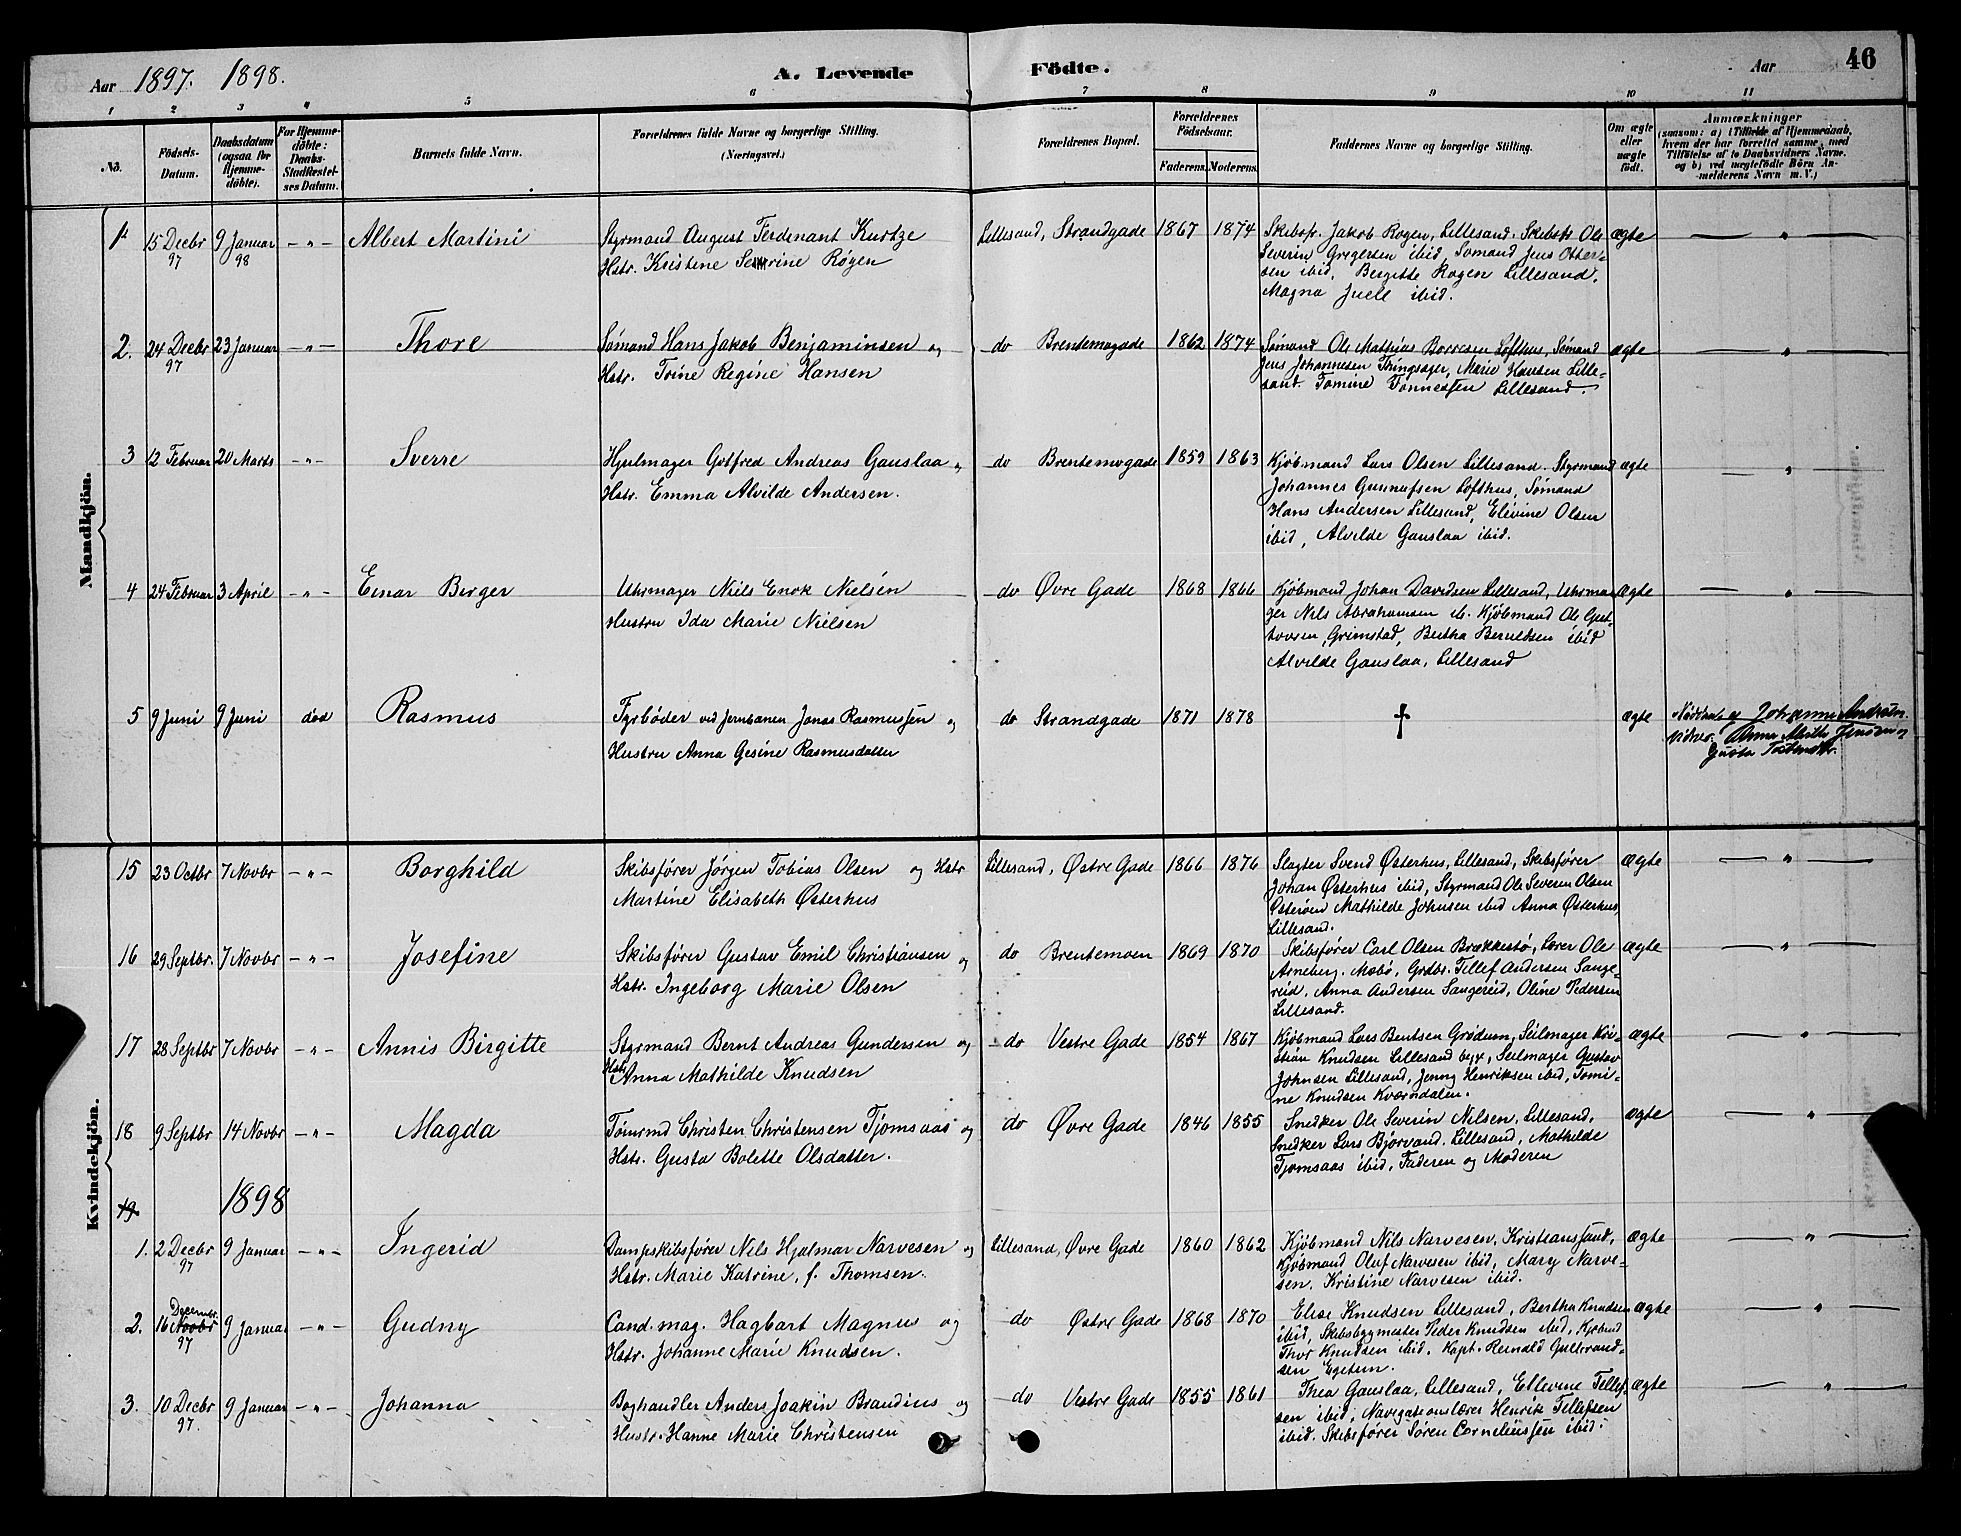 Aar 1897. 1898. A. Levende Födte. Aar 46
1 2 3 4 5 6 7 8 9 10 11
No. Födsels-Datum. Daabsdatum (ogsaa for Hjemmedöbte). For Hjemmedöbte: Daabs-Stadfæstelses Datum. Barnets fulde Navn. Forældrenes fulde Navne og borgerlige Stilling. (Næringsvei.) Forældrenes Bopæl. Forældrenes Födselsaar. Faderens. Moderens. Faddernes Navne og borgerlige Stilling. Om ægte eller uægte födt. Anmærkninger
(saasom: a) i Tilfælde af Hjemmedaab, hvem der har forrettet samme, med Tilföielse af to Daabsvidners Navne. og b) ved uægtefödte Börn Anmelderens Navn m. V.)
Mandkjön.
1. 15 Decbr 97 9 Januar 98 — " — Albert Martini Styrmand August Ferdenant Kurtze Lillesand, Strandgade 1867 1874 Skibsfr. Jakob Rogen, Lillesand. Skibsfr. Ole ægte — " —
Hstr. Kristine Severine Røgen Severin Gregersen ibid, Sømand Jens Otter-
sen ibid, Bergitte Rogen Lillesand,
Magna Juell ibid.
2. 24 Decbr 97 23 Januar — " — Thore Sømand Hans Jakob Benjaminsen og do Brentemogade 1862 1874 Sømand Ole Mathias Borresen Lofthus, Sømand ægte — " —
Hstr. Toine Regine Hansen Jens Johannesen Thingsager, Marie Hansen Lille-
sand. Tomine Tønnessen Lillesand.
3 12 Februar 20 Marts — " — Sverre Hjulmager Gotfred Andreas Gauslaa og do Brentemogade 1859 1863 Kjøbmand Lars Olsen Lillesand. Styrmand ægte — " —
Hstr. Emma Alvilde Andersen. Johannes Gunnufsen Lofthus, Sømand
Hans Andersen Lillesand, Elevine Olsen
ibid, Alvilde Gauslaa ibid.
4 24 Februar 3 April — " — Einar Berger Uhrmager Niels Enok Nielsen do Øvre Gade 1868 1866 Kjøbmand Johan Davidsen Lillesand, Uhrma- ægte — " —
Hustru Ida Marie Nielsen ger Nils Abrahamsen ib. Kjøbmand Ole Gus-
tovsen, Grimstad, Bertha Berntsen ibid
Alvilde Gauslaa, Lillesand
5 9 Juni 9 Juni død Rasmus Fyrbøder ved Jernbanen Jonas Rasmussen og do Strandgade 1871 1878 † ægte Nøddaab af Johanne
Hustru Anna Gesine Rasmusdatter
Kvindekjön.
15 23 Octbr 7 Novbr — " — Borghild Skibsfører Jørgen Tobias Olsen og Hstr Lillesand, Østre Gade 1866 1876 Slagter Svend Østerhus, Lillesand, Skibsfører ægte — " —
Martine Elisabeth Østerhus Johan Østerhus ibid, Styrmand Ole Severin Olsen
Østerøen Mathilde Johnsen ibid Anna Østerhus,
Lillesand.
16 29 Septbr. 7 Novbr — " — Josefine Skibsfører Gustav Emil Christiansen og do Brentemoen 1869 1870 Skibsfører Carl Olsen Brækkestø, Lærer Ole ægte — " —
Hstr. Ingeborg Marie Olsen Arneberg. Møbø, Grdbr. Tellef Andersen Sange-
reid, Anna Andersen Sangereid, Oline Pedersen
Lillesand.
17 28 Septbr 7 Novbr — " — Annis Birgitte Styrmand Bernt Andreas Gundersen og do Vestre Gade 1854 1867 Kjøbmand Lars Bentsen Grødum, Seilmager Kri- ægte — " —
Hstr. Anna Mathilde Knudsen stian Knudsen Lillesand by, Seilmager Gustav
Johnsen Lillesand, Jenny Henriksen ibid, Tomi-
ne Knudsen Kværndalen.
18 9 Septbr 14 Novbr — " — Magda Tømrmd Christen Christensen Tjømsaas og do Øvre Gade 1846 1855 Snedker Ole Severin Nilsen, Lillesand, ægte — " —
Hstr. Gusta Bolette Olsdatter. Snedker Lars Bjorvand. Lillesand, Mathilde
Tjomsaas ibid, Faderen og Moderen
19 1898
1. 2 Decbr 97 9 Januar — " — Ingerid Dampskibsfører Nils Hjalmar Narvesen og Lillesand, Øvre Gade 1860 1862 Kjøbmand Nils Narvesen, Kristianssand, ægte — " —
Hstr. Marie Katrine, f. Thomsen. Kjøbmand Oluf Narvesen ibid, Mary Narve-
sen, Kristine Narvesen ibid.
2. 16 Novbr Decembr 97 9 Januar — " — Gudny Cand. mag. Hagbart Magnus og do Østre Gade 1868 1870 Elise Knudsen Lillesand, Bertha Knudsen ægte — " —
Hstr. Johanne Marie Knudsen. ibid, Skibsbygmester Peder Knudsen ibid, Kjøbmd
Thor Knudsen ibid. Kapt. Reinald Gulbrand-
sen Egetun.
3. 10 Decbr 97. 9 Januar — " — Johanna Boghandler Anders Joakin Brandius og do Vestre Gade 1855 1861 Thea Gauslaa, Lillesand, Ellevine Tellef- ægte — " —
Hustr. Hanne Marie Christensen sen ibid, Navigationslærer Henrik Tellefsen
ibid. Skibsfører Søren Corneliussen ibid.